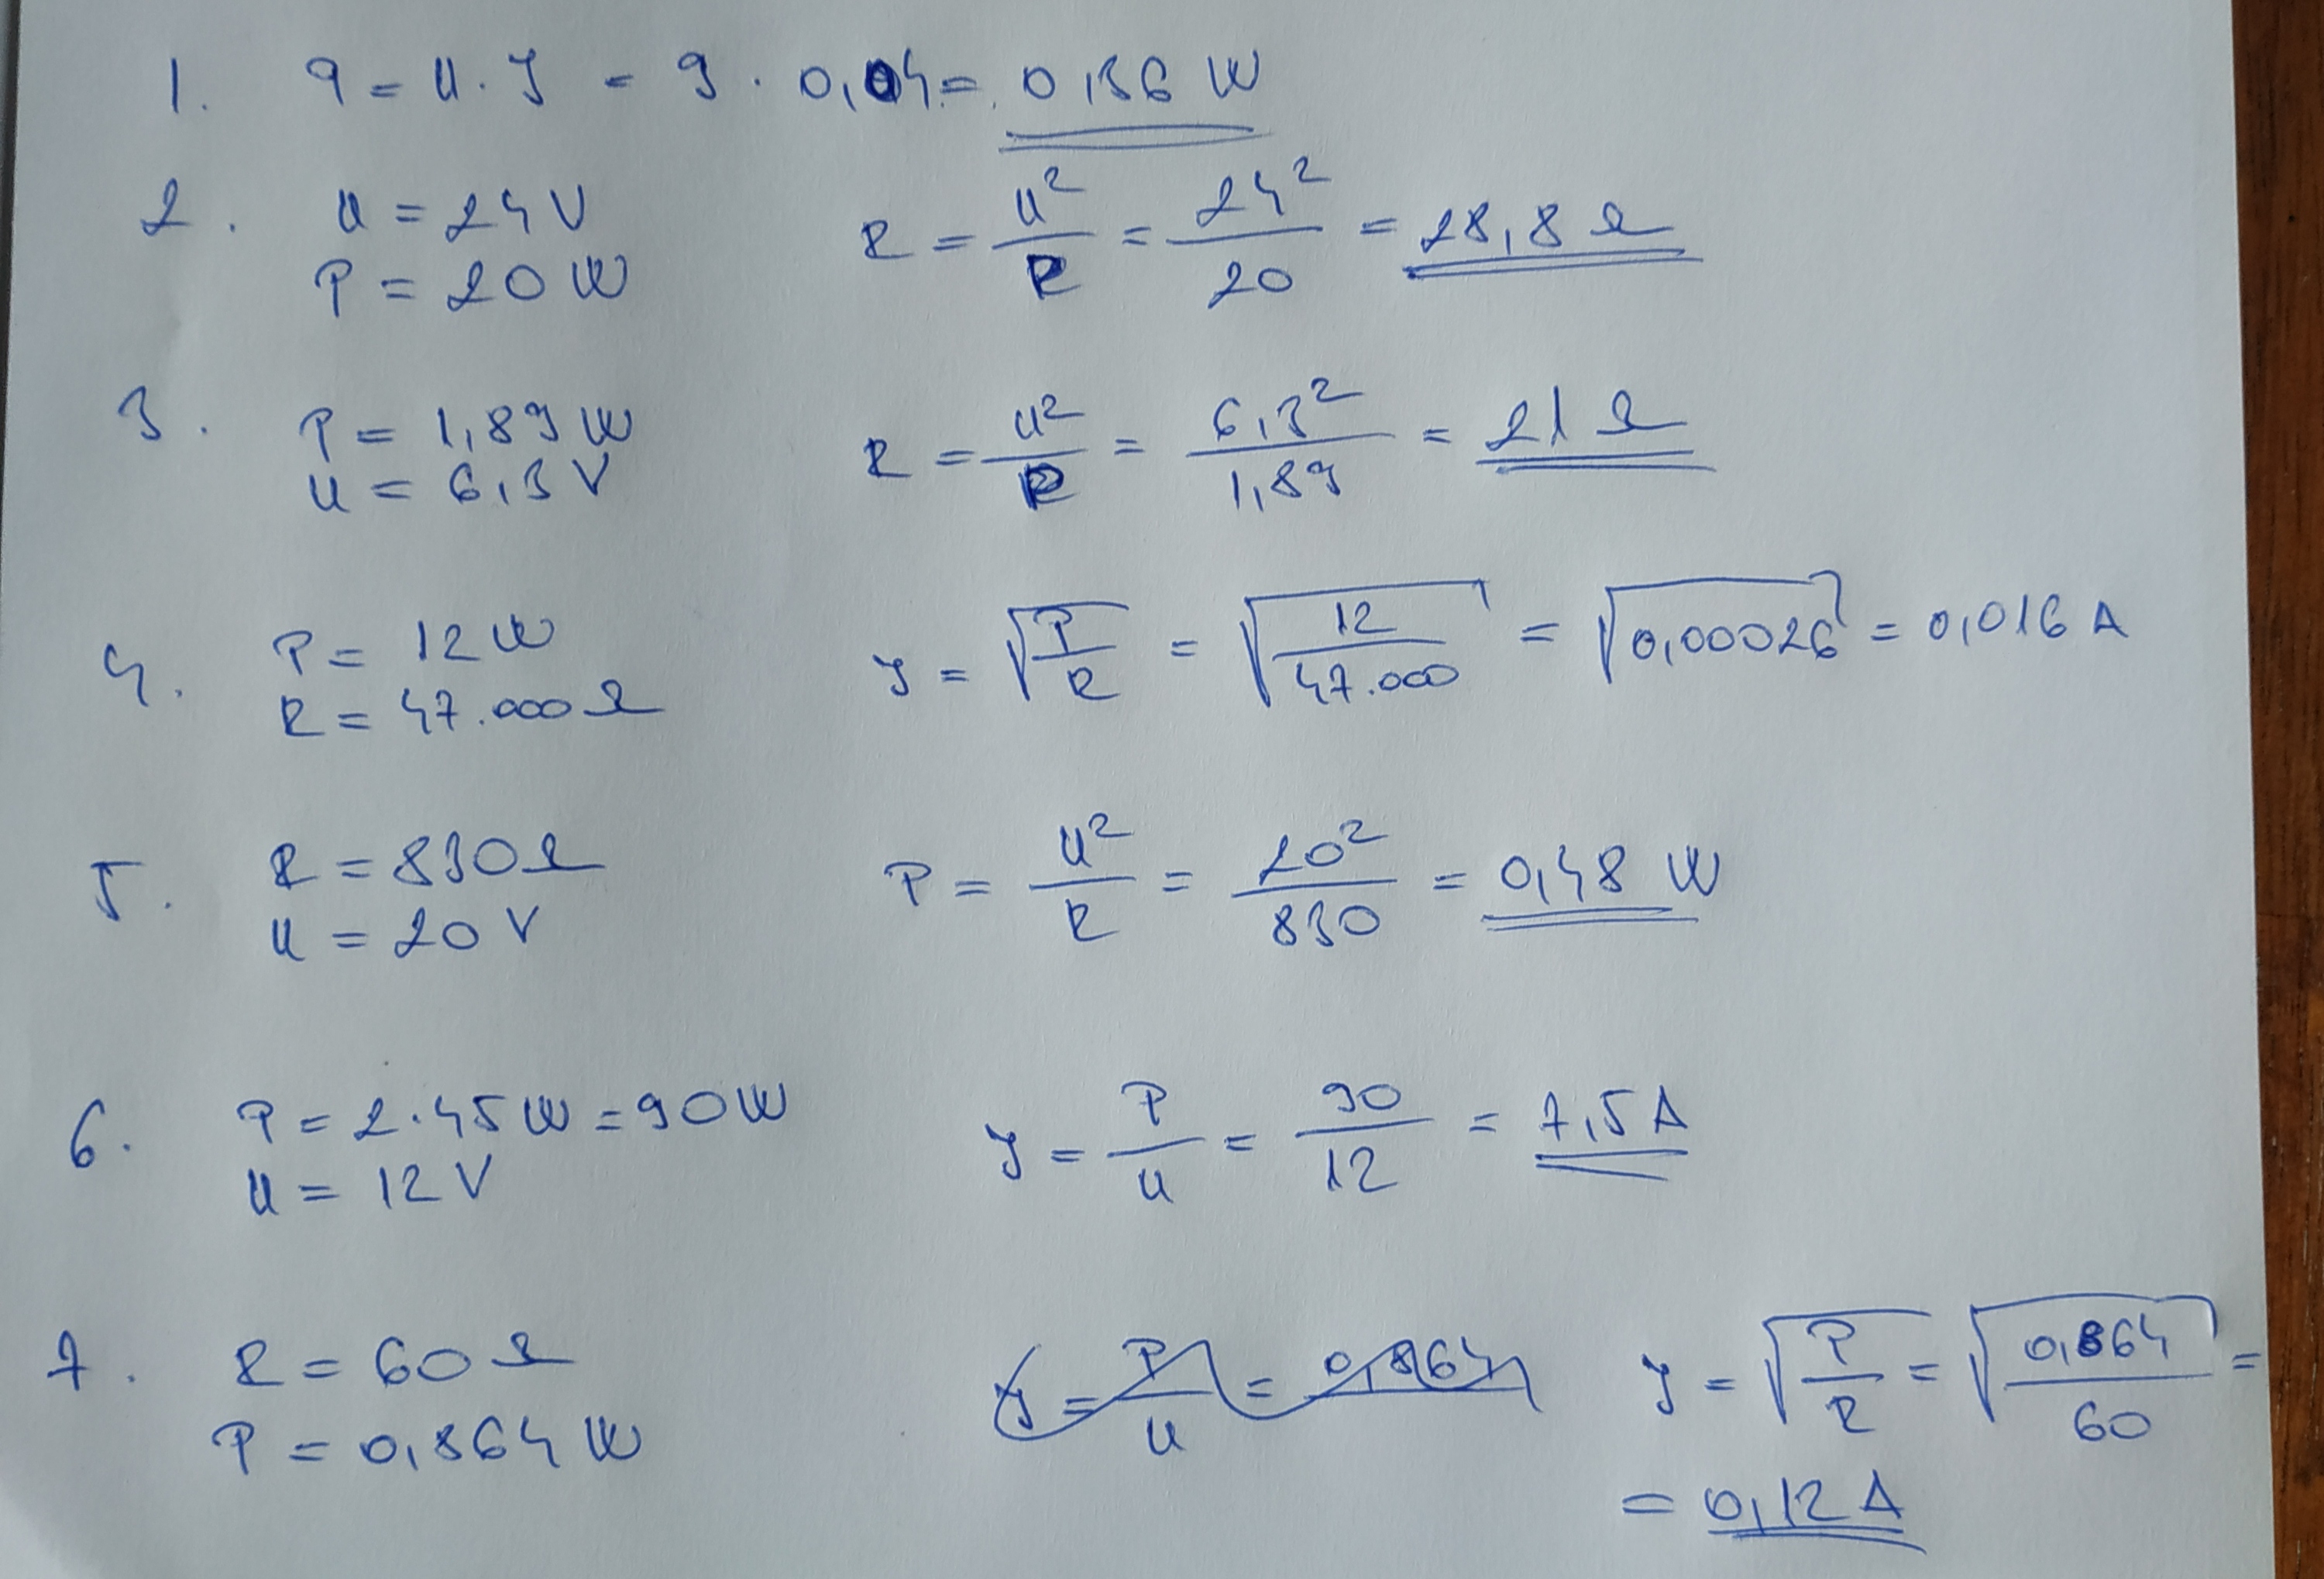 1. P = U . I = 9 . 0,04 = 0,36 W
2. U = 24 V
P = 20 W
R = U² / P = 24² / 20 = 28,8 Ω
3. P = 1,89 W
U = 6,3 V
R = U² / P = 6,3² / 1,89 = 21 Ω
4. P = 12 W
R = 47.000 Ω
I = √(P / R) = √(12 / 47.000) = √0,00026 = 0,016 A
5. R = 830 Ω
U = 20 V
P = U² / R = 20² / 830 = 0,48 W
6. P = 2.45 W = 90 W
U = 12 V
I = P / U = 90 / 12 = 7,5 A
7. R = 60 Ω
P = 0,864 W
I = P / U = 0,864
I = √(P / R) = √(0,864 / 60) =
= 0,12 A